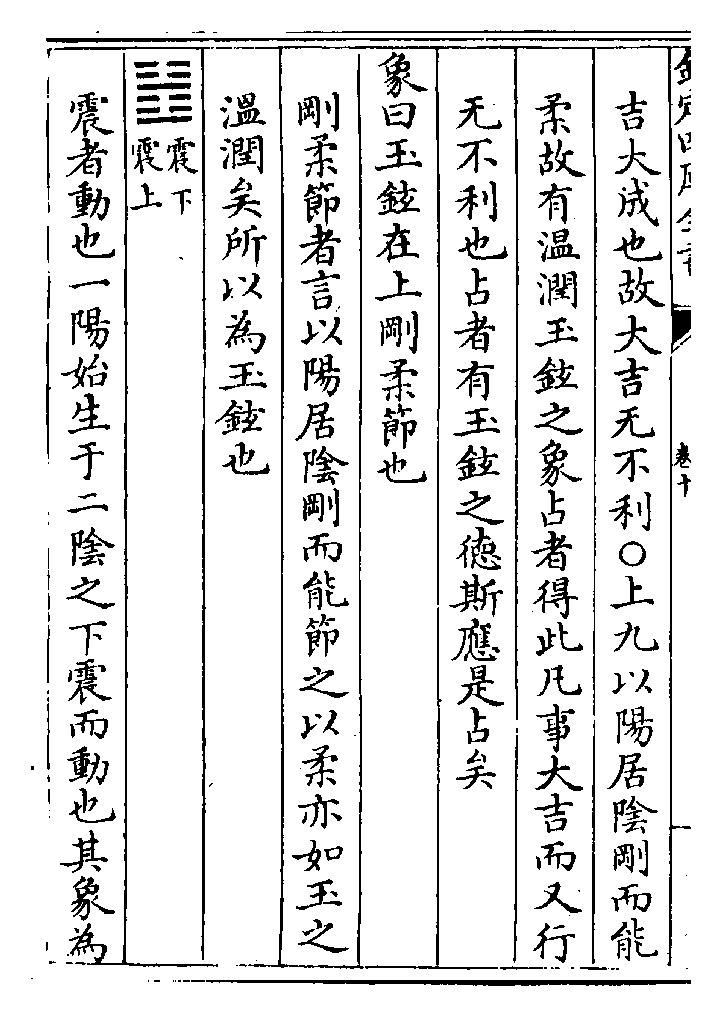 欽定四庫全書
卷十
吉大成也故大吉无不利○上九以陽居陰剛而能
柔故有溫潤玉鉉之象占者得此凡事大吉而又行
无不利也占者有玉鉉之德斯應是占矣
象曰玉鉉在上剛柔節也
剛柔節者言以陽居陰剛而能節之以柔亦如玉之
溫潤矣所以為玉鉉也
䷲震下
震上
震者動也一陽始生于二陰之下震而動也其象為